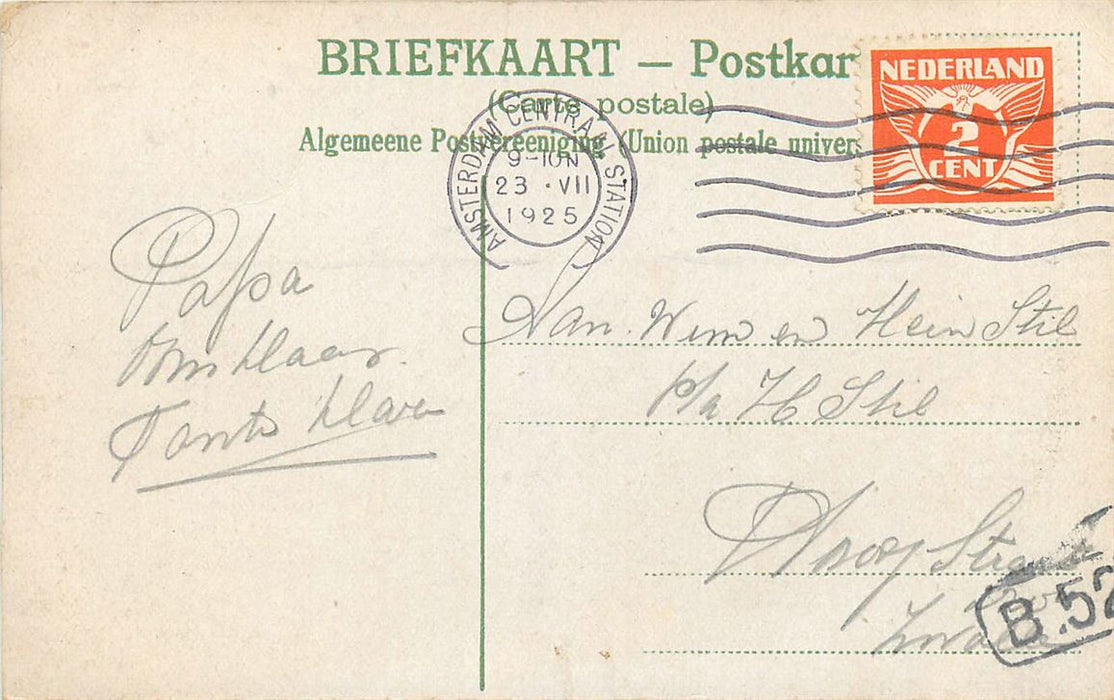 BRIEFKAART — Postkar
(Carte postale)
Algemeene Postvereeniging (Union postale univers
NEDERLAND
2
CENT
AMSTERDAM CENTRAAL STATION
9-10N
23 · VII
1925
Papa
Oom Klaas
Tante
Aan Wim en Hein Stil
p/a H Stil
B.52